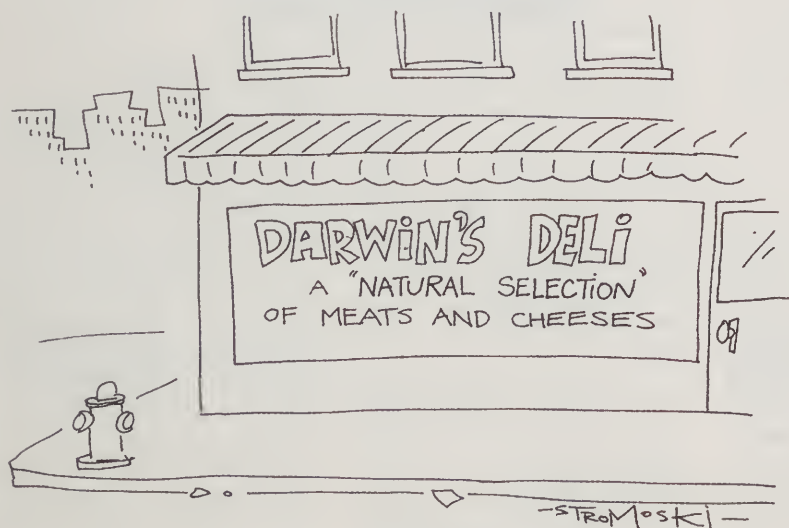 DARWiN'S DELi
A "NATURAL SELECTiON"
OF MEATS AND CHEESES
-STROMOSKi-